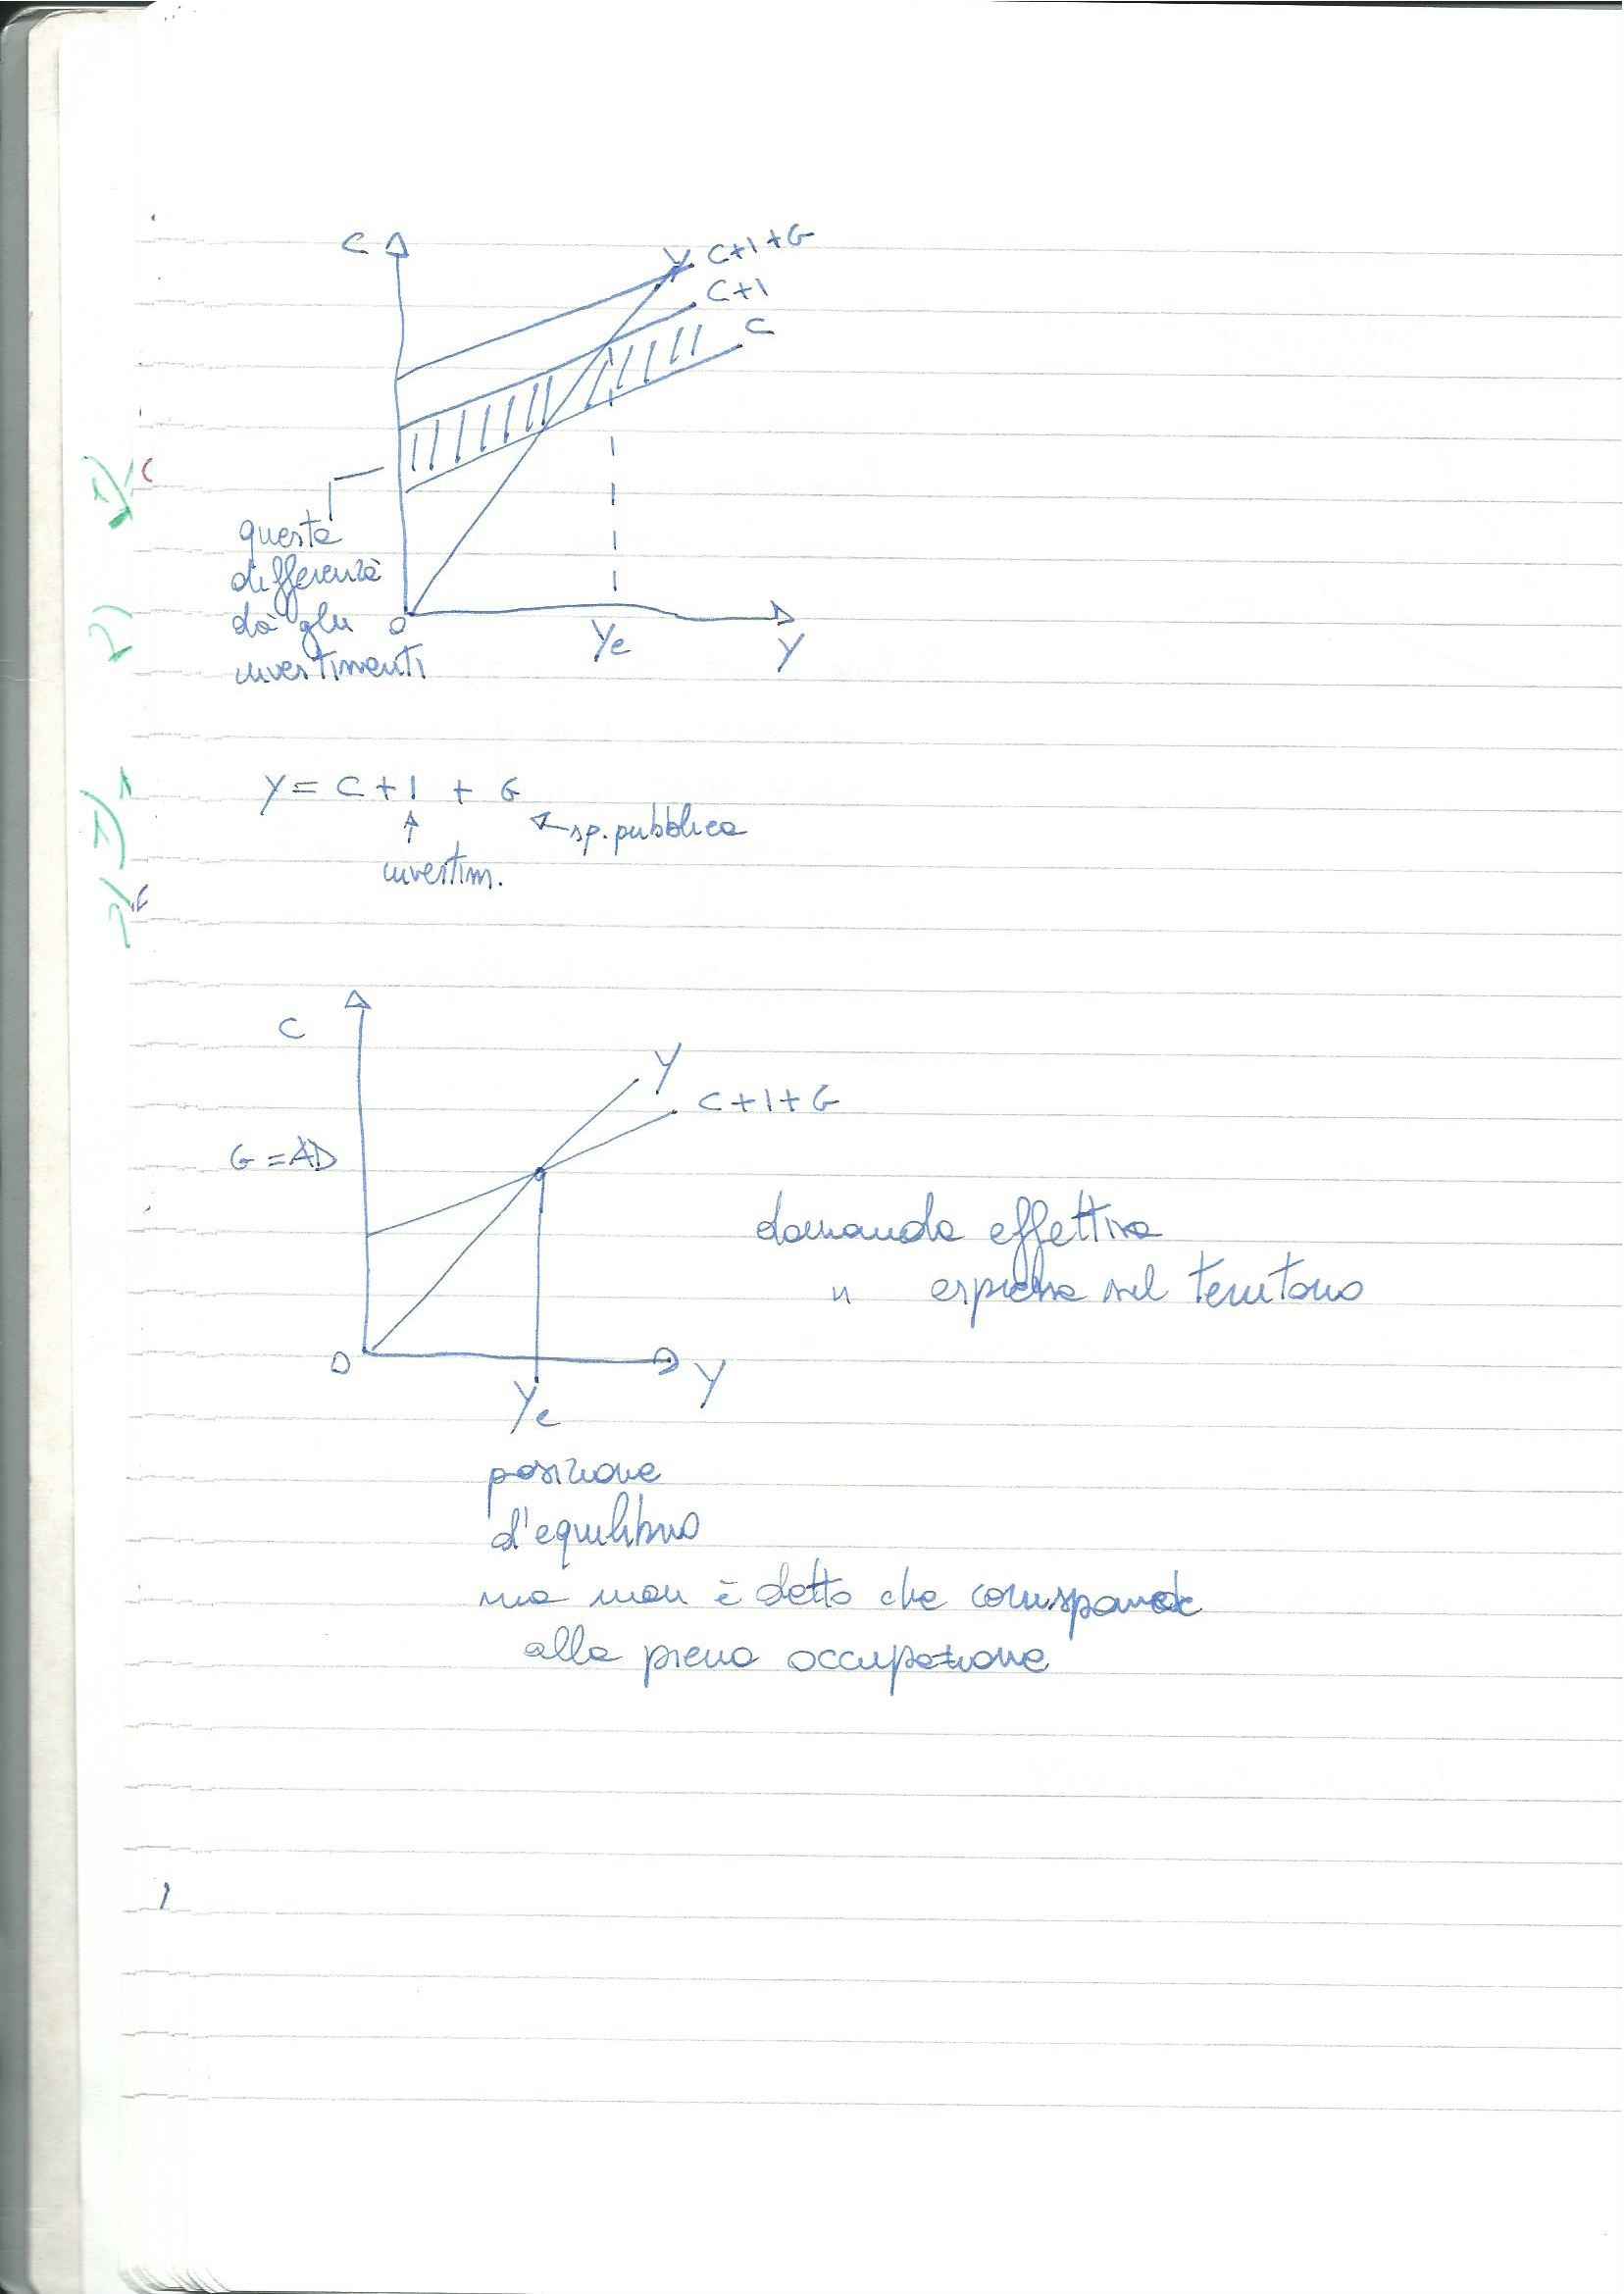 C
C+I+G
Y
C+I
C
questa
differenza
dà gli
investimenti
O
Ye
Y
Y = C + I + G
sp. pubblica
investim.
C
Y
C+I+G
G = AD
domanda effettiva
" espressa nel territorio
O
Y
Ye
posizione
d'equilibrio
ma non è detto che corrisponde
alla piena occupazione